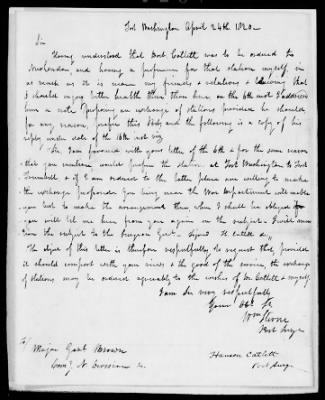 Fort Washington April 24th 1820—
Sir
Having understood that Doct Catlett was to be ordered to
New London, and having a preference for that station myself, in
as much as it is near my friends & relations & believing that
I should enjoy better health there than here on the 6th inst I addressed
him a note proposing an exchange of stations provided he should,
for any reason, prefer this Post, and the following is a copy of his
reply under date of the 16th inst viz
"Sir, I am favoured with your letter of the 6th & for the same reason
that you mention would prefer the station at Fort Washington to Fort
Trumbull & if I am ordered to the latter place am willing to make
the exchange proposed. You being near the War Department will enable
you best to make the arrangement then, when I shall be obliged if
you will let me hear from you again on the subject. I will name
the subject to the Surgeon Genl. signed H. Catlett &c,,
The object of this letter is therefore respectfully to request that, provided
it should comport with your views & the good of the service, the exchange
of stations may be ordered agreeably to the wishes of Dr. Catlett & myself.
I am Sir very respectfully
Your Obt St
Wm Stone
Post Surgn
To
Major Genl Brown
Comg N. Division &c
Hanson Catlett
Post Surgn